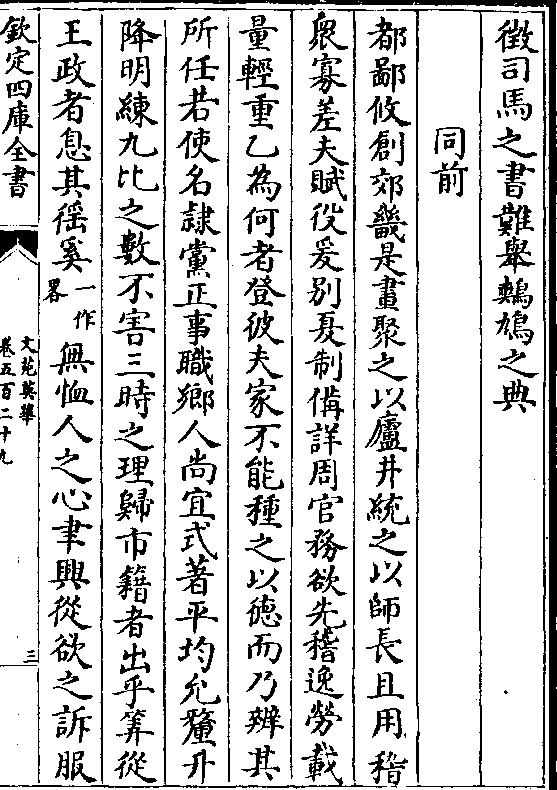 徴司馬之書難舉鷞鳩之典
同前
都鄙攸創郊畿是畫聚之以廬井統之以師長且用稽
衆寡差夫賦役爰别夏制備詳周官務欲先稽逸勞載
量輕重乙為何者登彼夫家不能種之以徳而乃辨其
所任若使名隷黨正事職鄉人尚宜式著平均允釐升
降明練九比之數不害三時之理歸市籍者出乎筭從
王政者息其徭奚一作畧無恤人之心聿興從欲之訴服
欽定四庫全書
文苑英華
卷五百二十九
三